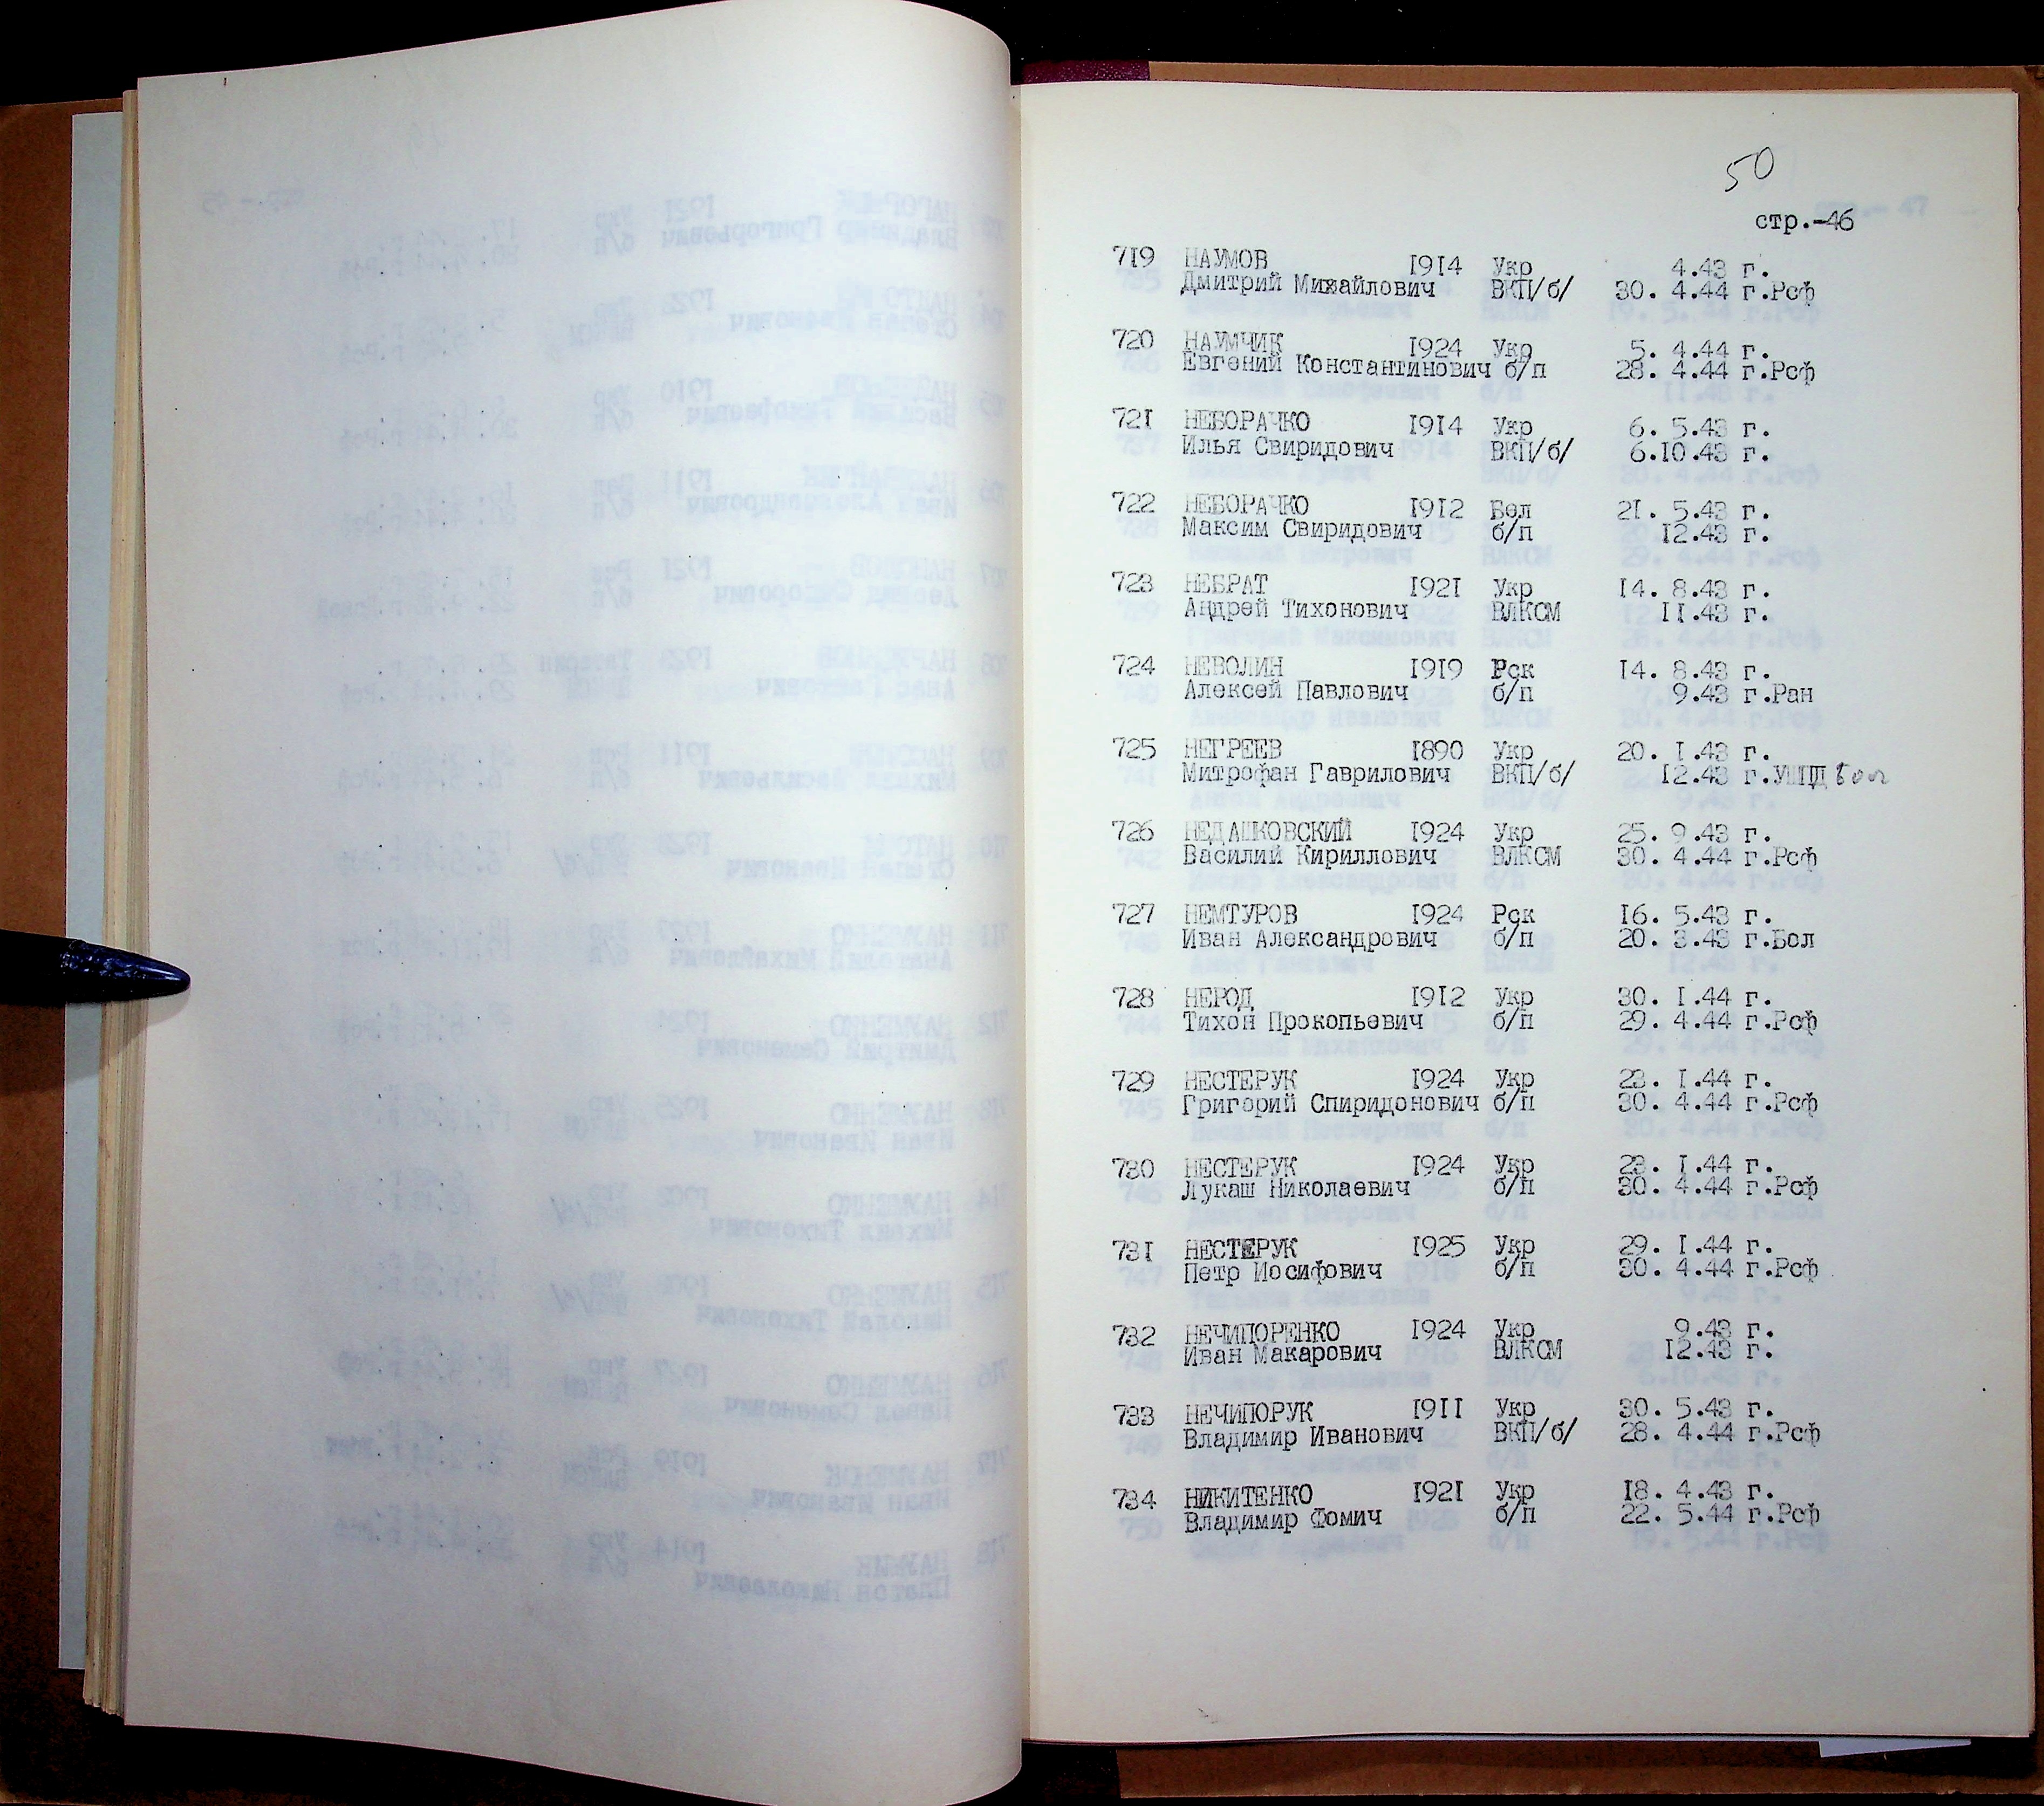 50
стр.-46
719 НАУМОВ 1914 Укр 4.43 г.
Дмитрий Михайлович ВКП/б/ 30. 4.44 г.Рсф
720 НАУМЧИК 1924 Укр 5. 4.44 г.
Евгений Константинович б/п 28. 4.44 г.Рсф
721 НЕБОРАЧКО 1914 Укр 6. 5.43 г.
Илья Свиридович ВКП/б/ 6.10.43 г.
722 НЕБОРАЧКО 1912 Бел 21. 5.43 г.
Максим Свиридович б/п 12.43 г.
723 НЕБРАТ 1921 Укр 14. 8.43 г.
Андрей Тихонович ВЛКСМ 11.43 г.
724 НЕВОЛИН 1919 Рск 14. 8.43 г.
Алексей Павлович б/п 9.43 г.Ран
725 НЕГРЕЕВ 1890 Укр 20. 1.43 г.
Митрофан Гаврилович ВКП/б/ 12.43 г.УШПД бол
726 НЕДАШКОВСКИЙ 1924 Укр 25. 9.43 г.
Василий Кириллович ВЛКСМ 30. 4.44 г.Рсф
727 НЕМТУРОВ 1924 Рск 16. 5.43 г.
Иван Александрович б/п 20. 3.43 г.Бол
728 НЕРОД 1912 Укр 30. 1.44 г.
Тихон Прокопьевич б/п 29. 4.44 г.Рсф
729 НЕСТЕРУК 1924 Укр 23. 1.44 г.
Григорий Спиридонович б/п 30. 4.44 г.Рсф
730 НЕСТЕРУК 1924 Укр 23. 1.44 г.
Лукаш Николаевич б/п 30. 4.44 г.Рсф
731 НЕСТЕРУК 1925 Укр 29. 1.44 г.
Петр Иосифович б/п 30. 4.44 г.Рсф
732 НЕЧИПОРЕНКО 1924 Укр 9.43 г.
Иван Макарович ВЛКСМ 12.43 г.
733 НЕЧИПОРУК 1911 Укр 30. 5.43 г.
Владимир Иванович ВКП/б/ 28. 4.44 г.Рсф
734 НИКИТЕНКО 1921 Укр 18. 4.43 г.
Владимир Фомич б/п 22. 5.44 г.Рсф